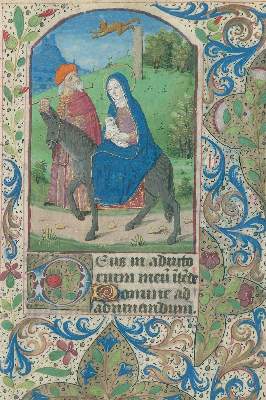 Deus in adiuto
rium meū ītēde
Domine ad
adiuuandum